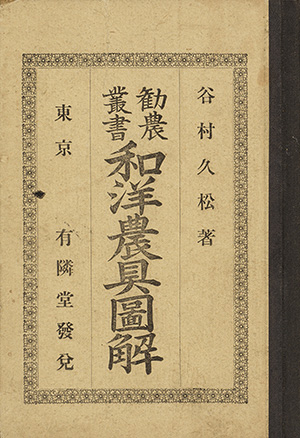 谷村久松著
勧農叢書
和洋農具圖解
東京 有隣堂發兌